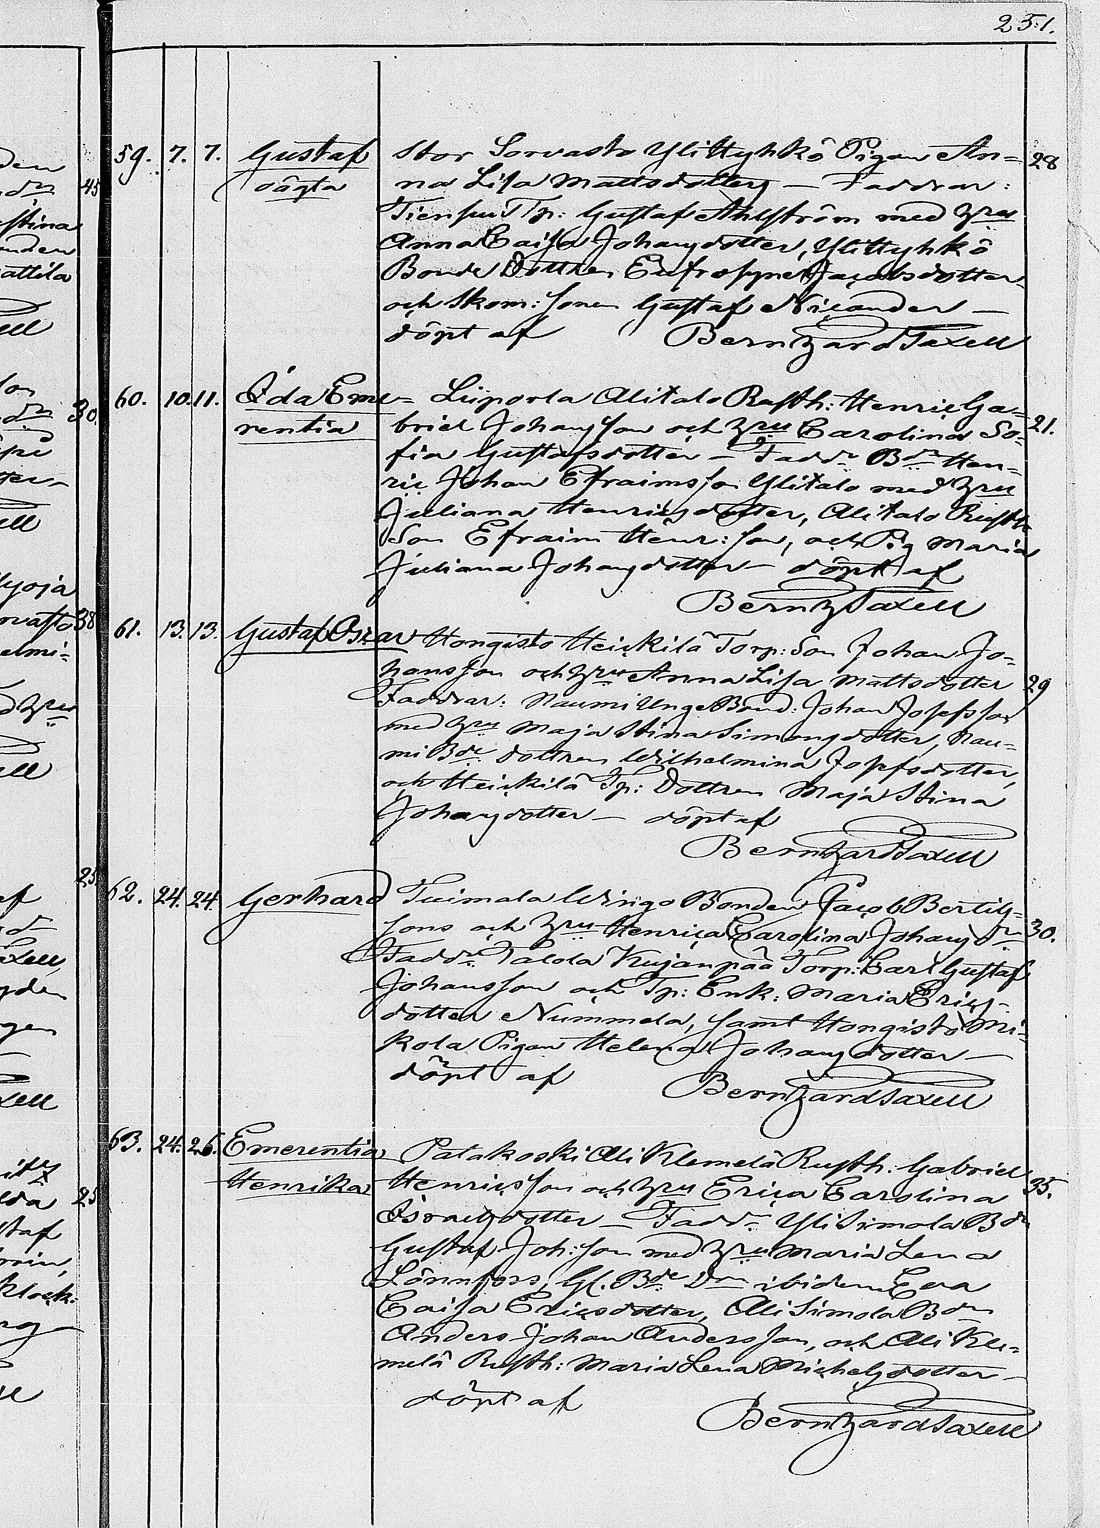 251.
59. 7. 7. Gustaf Stor Sorvasto Ylittyhkö Pigan An= 28
oägta na Lisa Mattsdotter — Faddrar:
Tiensuu Tp: Gustaf Ahlström med hru
Anna Caisa Johansdotter, Ylittyhkö
Bonde Dottren Eufrosyne Jacobsdotter
och Skom: Sonen Gustaf Nicander —
döpt af Bernhard Taxell
60. 10. 11. Ida Eme= Liiporla Alitalo Rusth: Henric Ga= 21.
rentia briel Johansson och hru Carolina So=
fia Gustafsdotter — Fadd: Bdn Hen=
ric Johan Efraimsson Ylitalo med hru
Juliana Henricsdotter, Alitalo Rusth:
Son Efraim Henr: son, och Pig Maria
Juliana Johansdotter — döpt af
Bernh Taxell
61. 13. 13. Gustaf Oscar Hongisto Heickilä Torp: Son Johan Jo=
hansson och hru Anna Lisa Mattsdotter 29
Faddrar: Naumi Unge Bond: Johan Josefsson
med hru Maja Stina Simonsdotter, Nau=
mi Bde Dottren Wilhelmina Josefsdotter,
och Heickilä Tp: Dottren Maja Stina
Johansdotter — döpt af
Bernhard Taxell
62. 24. 24. Gerhard Tuimala Wingo Bonden Jacob Bertils=
sons och hru Henrica Carolina Johans dr 30.
Fadd: Talola Kujanpää Torp: Carl Gustaf
Johansson och Tp: Enk: Maria Erics=
dotter Nummela, samt Hongisto Mi=
kola Pigan Helena Johansdotter —
döpt af Bernhard Taxell
63. 24. 26. Emerentia Patakoski Ali Klemelä Rusth: Gabriel
Henrika Henricsson och hru Erica Carolina 35.
Israelsdotter — Fadd: Yli Simola Bdn
Gustaf Joh: son med hru Maria Lena
Lönnfors, Gl. Bde Dn ibidem Eva
Caisa Ericsdotter, Ali Simola Bdn
Anders Johan Andersson, och Ali Kle=
melä Rusth: Maria Lena Michelsdotter —
döpt af
Bernhard Taxell